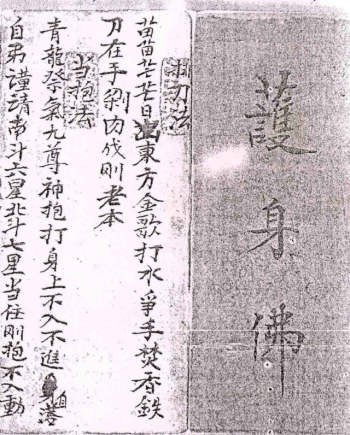 護身佛
刀法
苗苗芒芒日出東方金歌打水爭手焚香鉄
刀在手剁肉伐刚老本
当抱法
青龍祭氣九尊神抱打身上不入不進
自弟謹請南斗六星北斗七星当住刚抱不入動